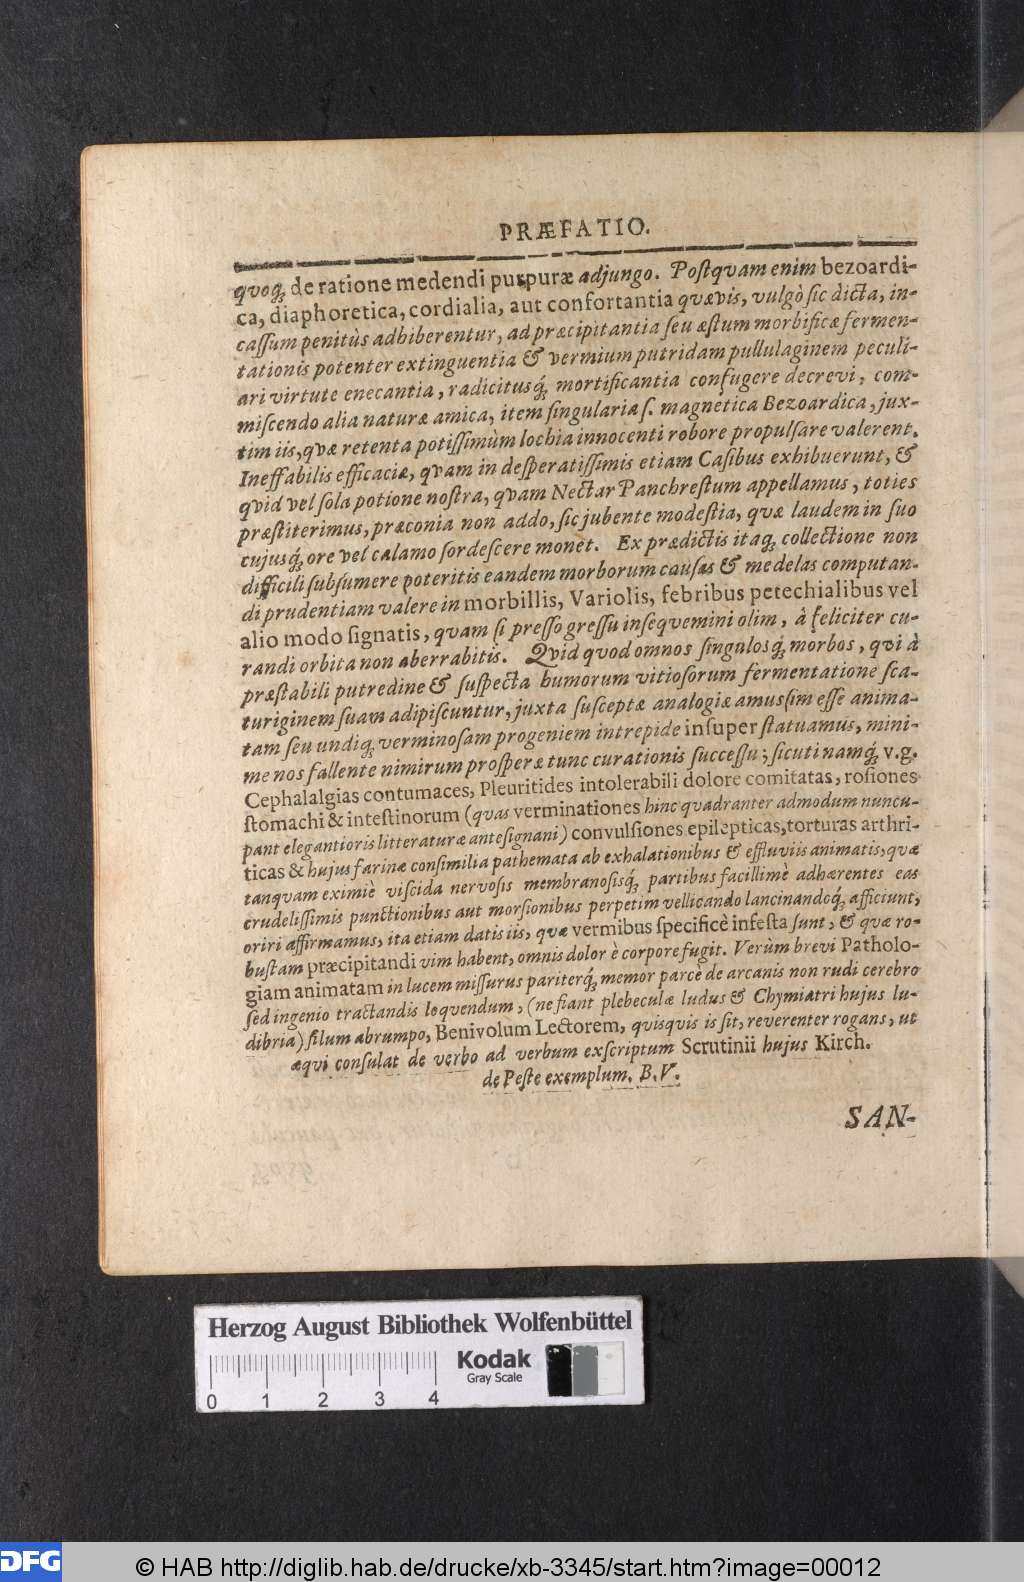 PRÆFATIO.
quoq́; de ratione medendi purpuræ adjungo. Poſtqvam enim bezoardi-
ca, diaphoretica, cordialia, aut confortantia qvævis, vulgò ſic dicta, in-
caſſum penitùs adhiberentur, ad præcipitantia ſeu æſtum morbificæ fermen-
tationis potenter extinguentia & vermium putridam pullulaginem peculi-
ari virtute enecantia, radicitusq́; mortificantia confugere decrevi, com-
miſcendo alia naturæ amica, item ſingularia ſ. magnetica Bezoardica, jux-
tim iis, qvæ retenta potiſſimùm lochia innocenti robore propulſare valerent.
Ineffabilis efficaciæ, qvam in deſperatiſſimis etiam Caſibus exhibuerunt, &
qvid vel ſola potione noſtra, qvam Nectar Panchreſtum appellamus, toties
præſtiterimus, præconia non addo, ſic jubente modeſtia, qvæ laudem in ſuo
cujusq́; ore vel calamo ſordeſcere monet. Ex prædictis itaq́; collectione non
difficili ſubſumere poteritis eandem morborum cauſas & medelas computan-
di prudentiam valere in morbillis, Variolis, febribus petechialibus vel
alio modo ſignatis, qvam ſi preſſo greſſu inſeqvemini olim, à feliciter cu-
randi orbita non aberrabitis. Qvid qvod omnos ſingulosq́; morbos, qvi à
præſtabili putredine & ſuſpecta humorum vitioſorum fermentatione ſca-
turiginem ſuam adipiſcuntur, juxta ſuſceptæ analogiæ amuſſim eſſe anima-
tam ſeu undiq́; verminoſam progeniem intrepide inſuper ſtatuamus, mini-
me nos fallente nimirum proſperæ tunc curationis ſucceſſu; ſicuti namq́; v.g.
Cephalalgias contumaces, Pleuritides intolerabili dolore comitatas, roſiones
ſtomachi & inteſtinorum (qvas verminationes hinc quadranter admodum nuncu-
pant elegantioris litteraturæ anteſignani) convulſiones epilepticas, torturas arthri-
ticas & hujus farinæ conſimilia pathemata ab exhalationibus & effluviis animatis, qvæ
tanqvam eximiè viſcida nervoſis membranoſisq́; partibus facillimè adhærentes eas
crudeliſſimis punctionibus aut morſionibus perpetim vellicando lancinandoq́; afficiunt,
oriri affirmamus, ita etiam datis iis, qvæ vermibus ſpecificè infeſta ſunt, & qvæ ro-
buſtam præcipitandi vim habent, omnis dolor è corpore fugit. Verùm brevi Patholo-
giam animatam in lucem miſſurus pariterq́; memor parcè de arcanis non rudi cerebro
ſed ingenio tractandis loqvendum, (ne fiant plebeculæ ludus & Chymiatri hujus lu-
dibria) filum abrumpo, Benivolum Lectorem, quisquis is ſit, reverenter rogans, ut
æqvi conſulat de verbo ad verbum exſcriptum Scrutinii hujus Kirch.
de Peſte exemplum. B. V.
SAN-
Herzog August Bibliothek Wolfenbüttel
Kodak
Gray Scale
0 1 2 3 4
DFG © HAB http://diglib.hab.de/drucke/xb-3345/start.htm?image=00012